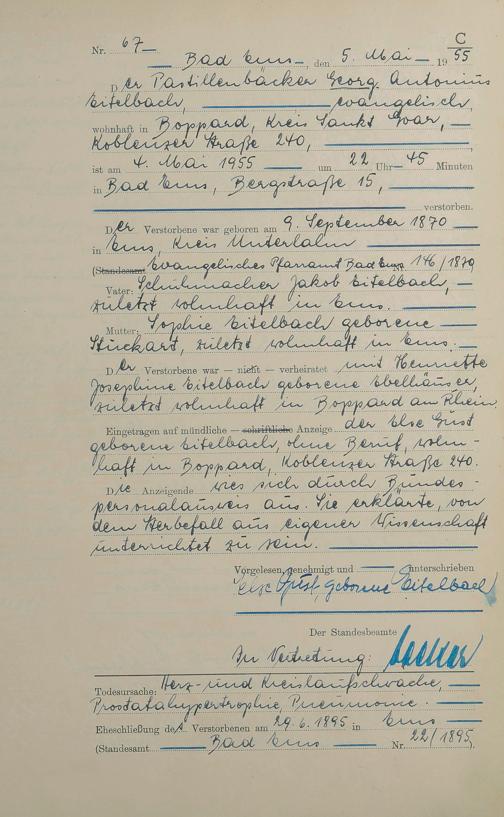 C
Nr. 67
Bad Ems, den 5. Mai 1955
Der Pastillenbäcker Georg Antonius
Eitelbach, evangelisch,
wohnhaft in Boppard, Kreis Sankt Goar,
Koblenzer Straße 240,
ist am 4. Mai 1955 um 22 Uhr 45 Minuten
in Bad Ems, Bergstraße 15,
verstorben.
Der Verstorbene war geboren am 9. September 1870
in Ems, Kreis Unterlahn
(Standesamt Evangelisches Pfarramt Bad Ems Nr. 146/1870
Vater: Schuhmacher Jakob Eitelbach,
zuletzt wohnhaft in Ems.
Mutter: Sophie Eitelbach geborene
Stuckart, zuletzt wohnhaft in Ems.
Der Verstorbene war — nicht — verheiratet mit Henriette
Josephine Eitelbach geborene Ebelhäuser,
zuletzt wohnhaft in Boppard am Rhein
Eingetragen auf mündliche — schriftliche Anzeige der Else Gust
geborene Eitelbach, ohne Beruf, wohn-
haft in Boppard, Koblenzer Straße 240.
Die Anzeigende wies sich durch Bundes-
personalausweis aus. Sie erklärte, von
dem Sterbefall aus eigener Wissenschaft
unterrichtet zu sein.
Vorgelesen, genehmigt und unterschrieben
Else Gust, geborene Eitelbach
Der Standesbeamte
In Vertretung:
Todesursache: Herz- und Kreislaufschwäche,
Prostatahypertrophie, Pneumonie.
Eheschließung des Verstorbenen am 29.6.1895 in Ems
(Standesamt Bad Ems Nr. 22/1895).